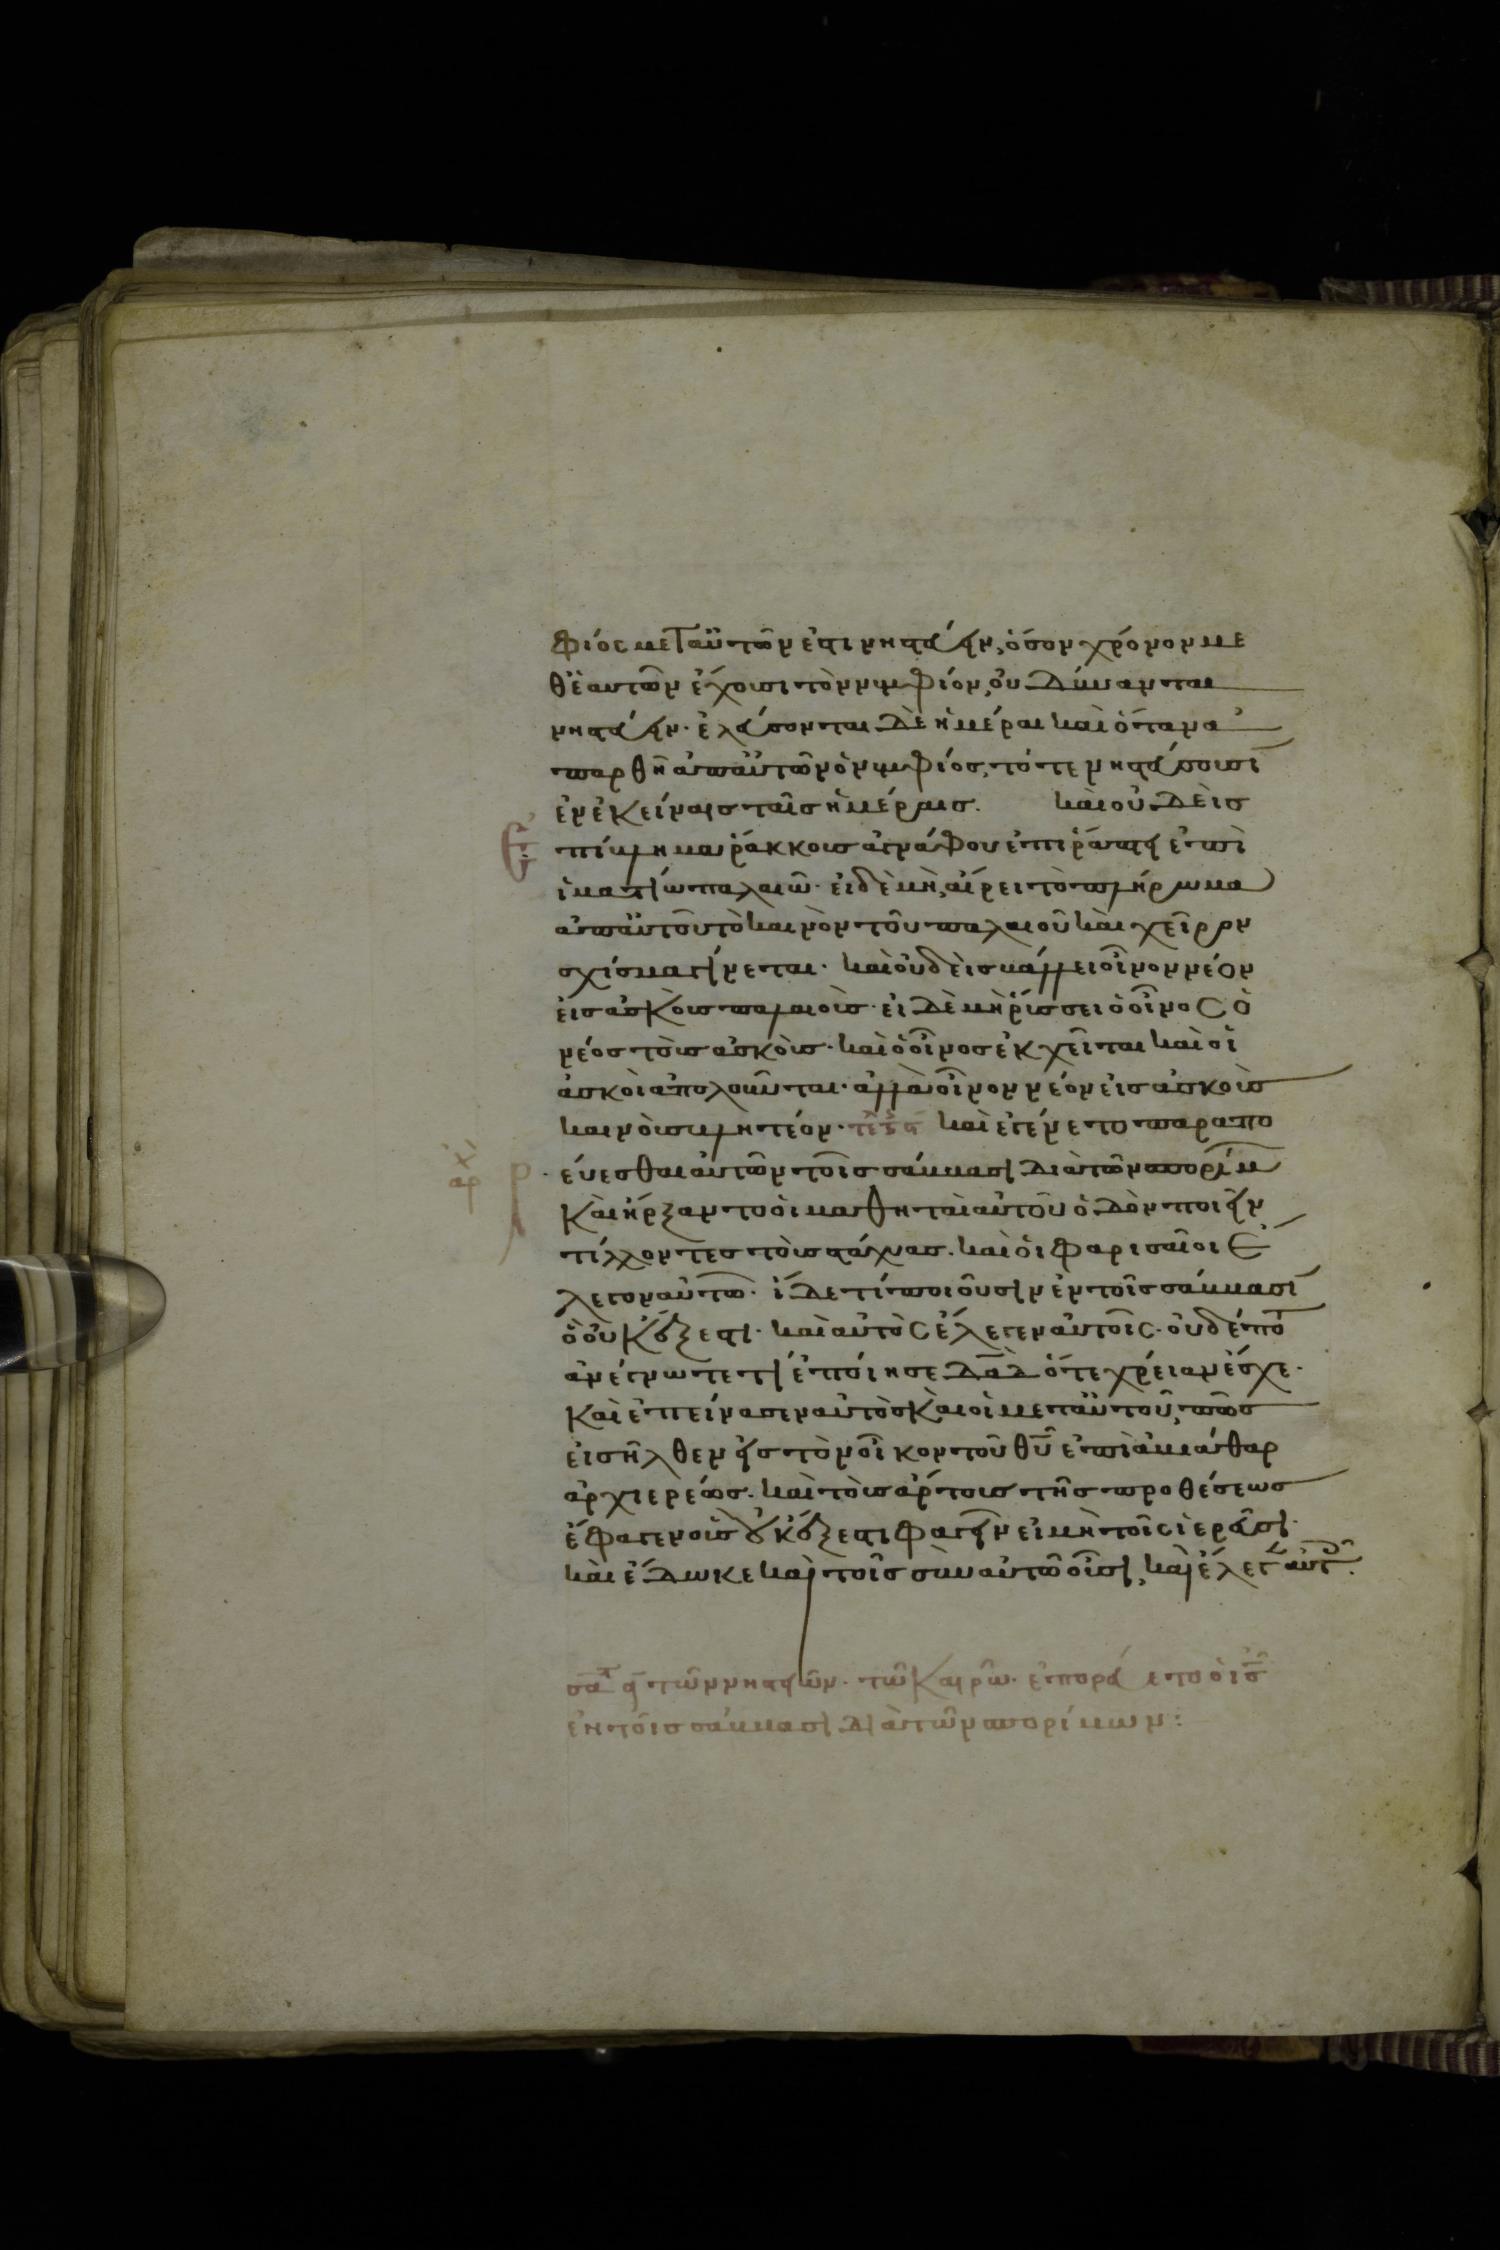 φίος μετ αὐτῶν ἐστι νηστεύειν, ὅσον χρόνον με
θ ἑαυτῶν ἔχουσι τὸν νυμφίον, οὐ δύνανται
νηστεύειν· ἐλεύσονται δὲ ἡμέραι καὶ ὅταν α
παρθῆ ἀπ αὐτῶν ὁ νυμφίος, τότε νηστεύσουσι
ἐν ἐκείναις ταῖς ἡμέραις. καὶ οὐδεὶς
ἐπίβλημα ῥάκκους ἀγνάφου ἐπιράπτει ἐπὶ
ἱματίω παλαιῶ· εἰ δὲ μὴ, αἴρει τὸ πλήρωμα
ἀπ αὐτοῦ τὸ καινὸν τοῦ παλαιοῦ καὶ χεῖρον
σχίσμα γίνεται· καὶ οὐδεὶς βάλλει οἶνον νέον
εἰς ἀσκοὺς παλαιοὺς· εἰ δὲ μὴ ῥήσσει ὁ οἶνος ὁ
νέος τοὺς ἀσκοὺς· καὶ ὁ οἶνος ἐκχεῖται καὶ οἱ
ἀσκοὶ ἀπολοῦνται· ἀλλὰ οἶνον νέον εἰς ἀσκοὺς
καινοὺς βλητέον· καὶ ἐγένετο παραπο
ρεύεσθαι αὐτὸν τοῖς σάββασι διὰ τῶν σπορίμ
Καὶ ἤρξαντο οἱ μαθηταὶ αὐτοῦ ὁδὸν ποιεῖν
τίλλοντες τοὺς στάχυας. καὶ οἱ φαρισαῖοι ἔ
λεγον αὐτῶ· ἴδε τί ποιοῦσιν ἐν τοῖς σάββασι
ὃ οὐκ ἔξεστι· καὶ αὐτὸς ἔλεγεν αὐτοῖς· οὐδέποτ
ἀνέγνωτε τί ἐποίησε δαδ ὅτε χρείαν ἔσχε·
Καὶ ἐπείνασεν αὐτὸς καὶ οἱ μετ αὐτοῦ, πῶς
εἰσῆλθεν εἰς τὸν οἶκον τοῦ θυ ἐπὶ ἀβιάθαρ
ἀρχιερέως. καὶ τοὺς ἄρτους τῆς προθέσεως
ἔφαγεν οὓς οὐκ ἔξεστι φαγεῖν εἰ μὴ τοῖς ἱερεῦσι·
καὶ ἔδωκε καὶ τοῖς σὺν αὐτῶ οὖσι, καὶ ἔλεγ αὐτ.
τῶν νηστειῶν· τῶ καιρῶ· ἐπορεύετο ὁ ις
ἐν τοῖς σάββασι διὰ τῶν σπορίμων: